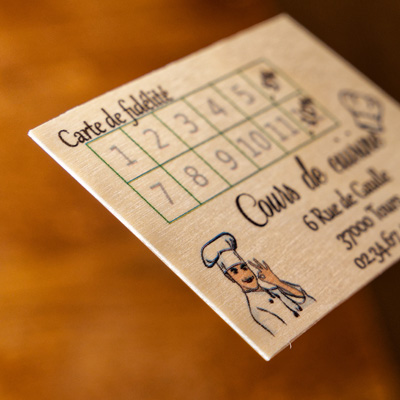 Carte de fidélité
1 2 3 4 5
7 8 9 10 11
Cours de cuisine
6 Rue de Gaulle
37000 Tours
02.34.67